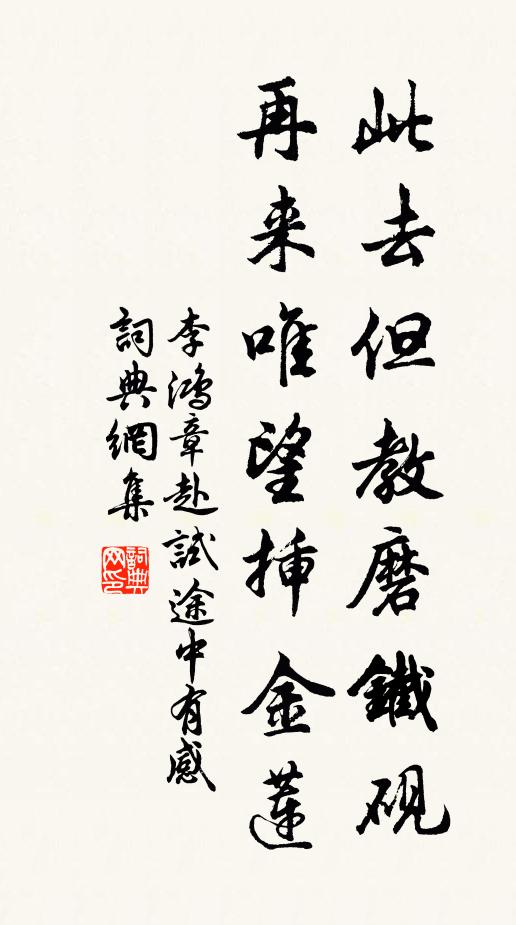 此去但教磨鐵硯
再来唯望插金蓮
李鴻章赴試途中有感
詞典網集
詞典
网印